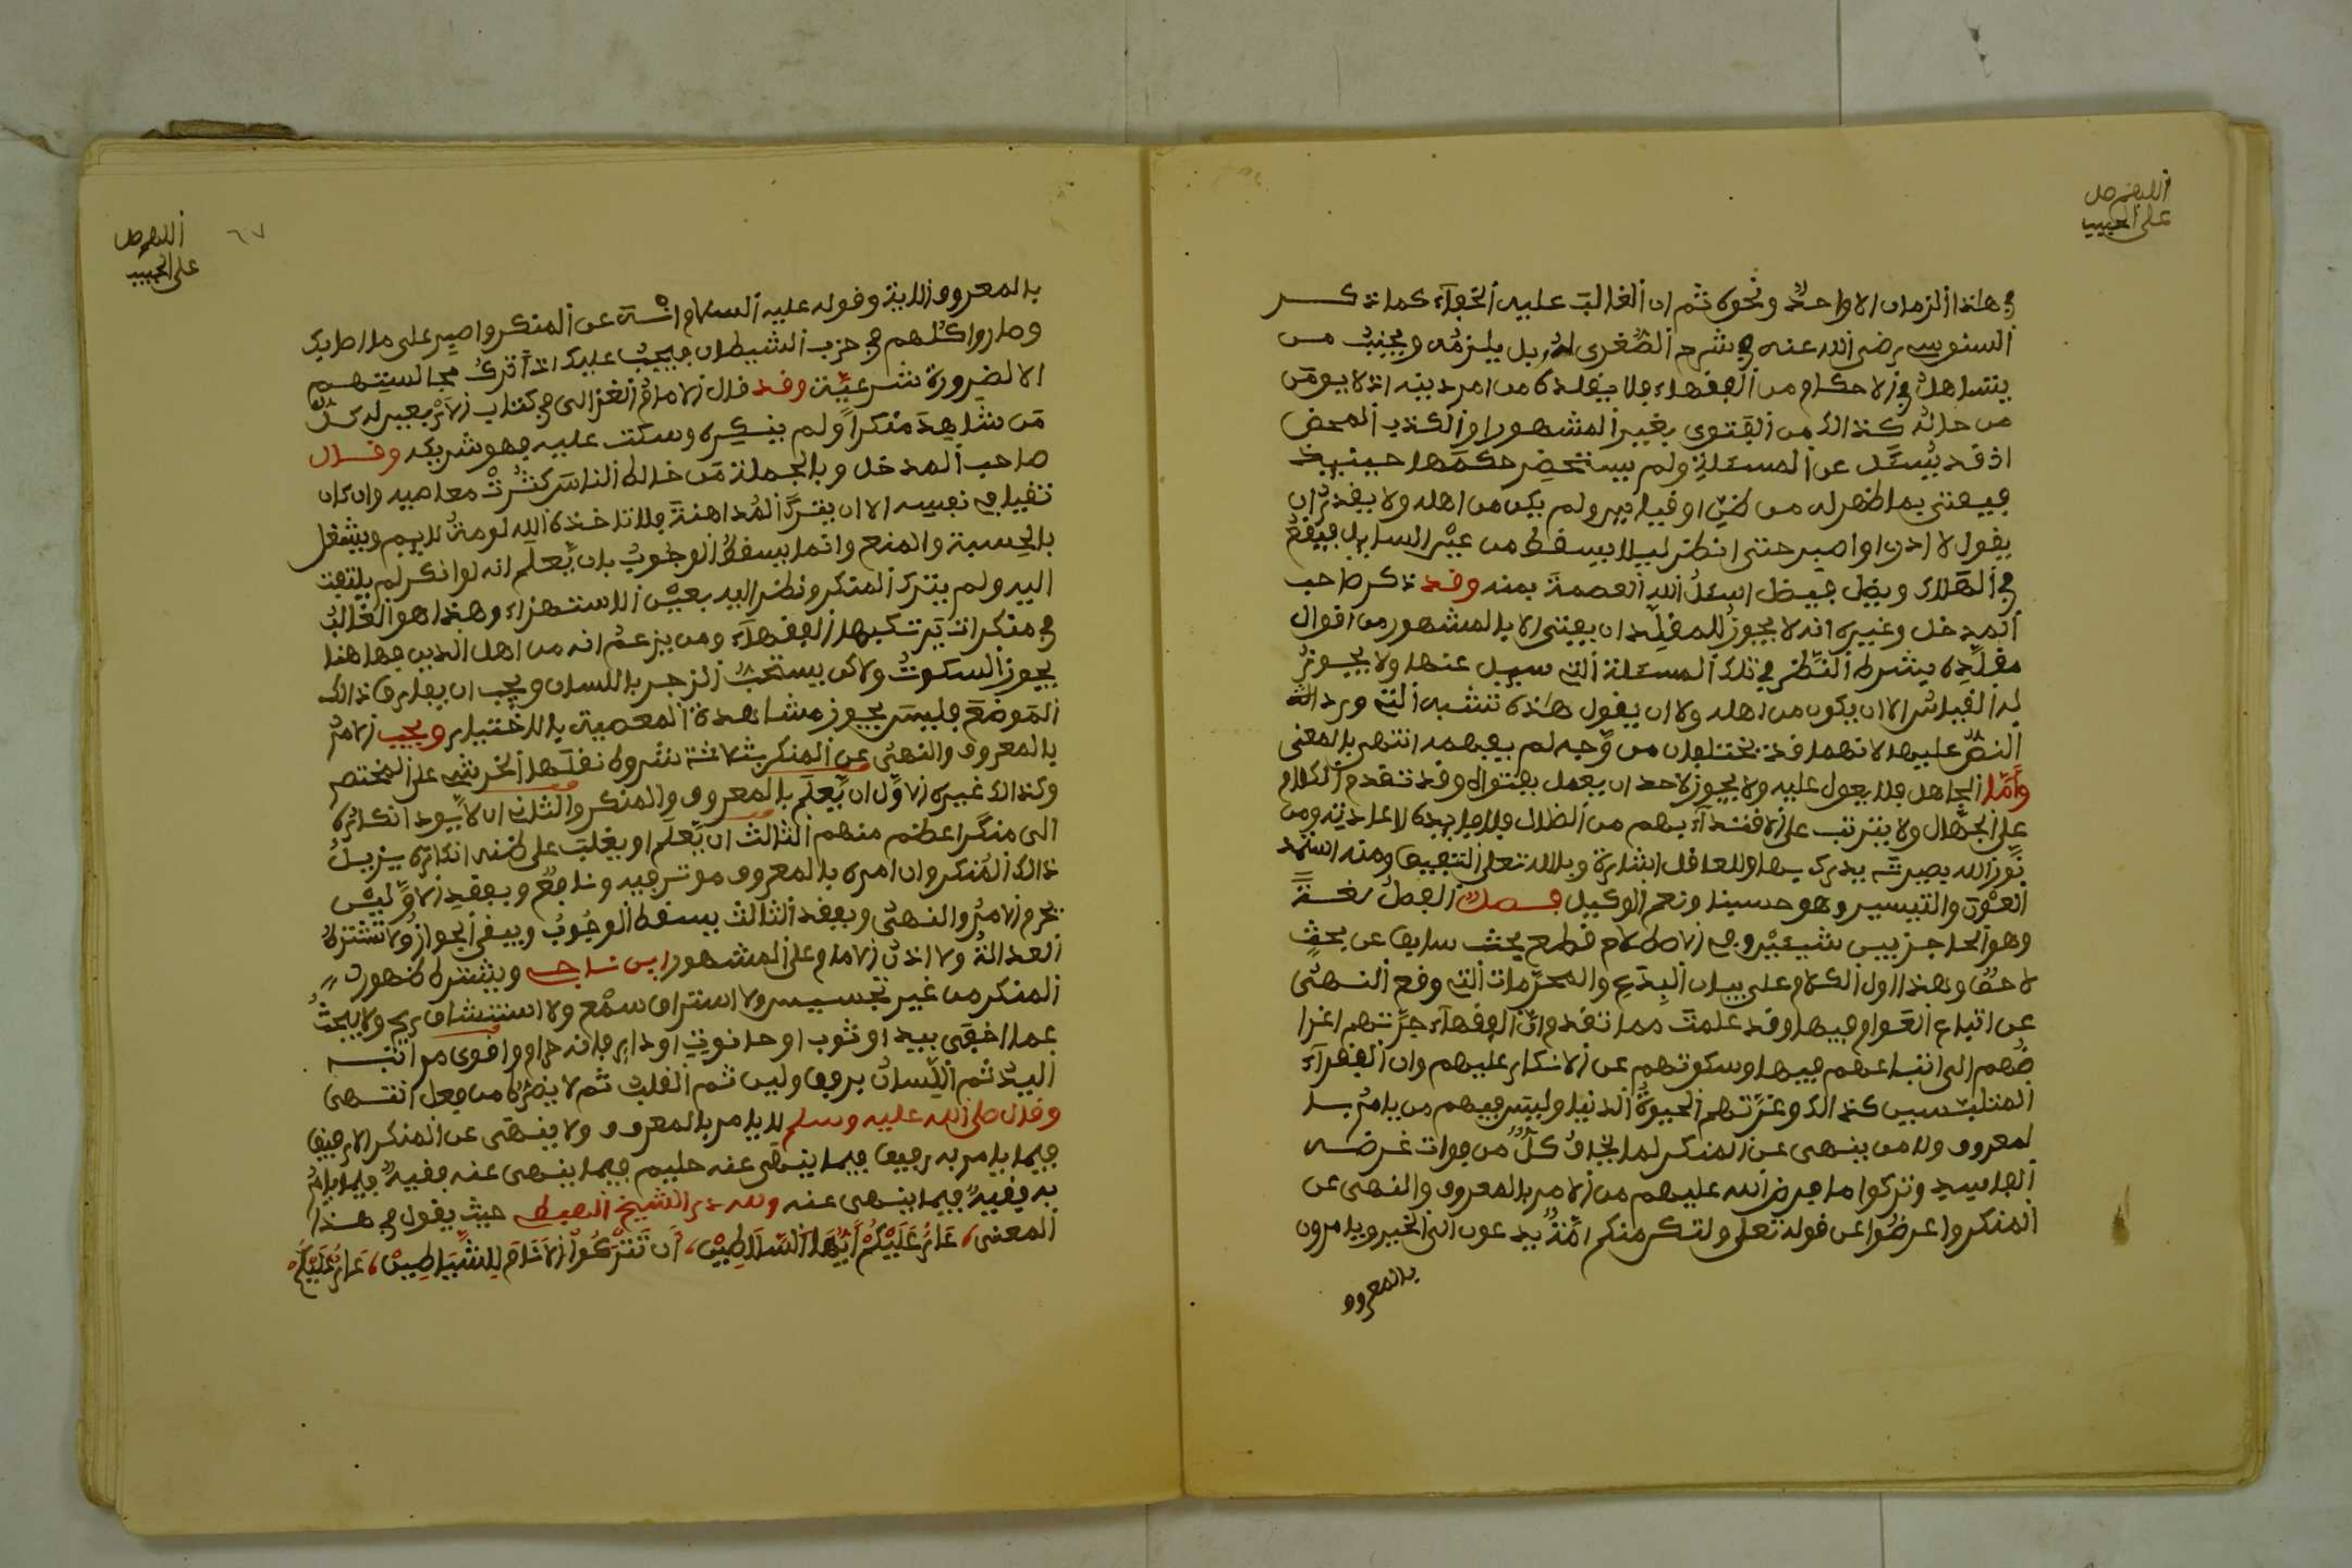 اللهم صل
على الحبيب
في هاذا الزمان الا واحدٌ ونحوه ثم ان الغالبَ عليه الخفآء كما ذكــر
السنوسي رضي الله عنه في شرح الصُّغرى له بل يلزمُه ويجنبُ مــن
يتساهلُ في الاحكام من الفقهاء فلا يقلده من امر دينه اذ لا يومَن
من حاله كذالك من الفتوى بغير المشهور او الكذب المحض
اذ قد يُسئَل عن المسئلة ولم يستحضِر حكمَها حينيذ
فيفتي بما ظهر له من ظنٍ او قياسٍ ولم يكن من اهله ولا يقدرُ ان
يقول لا ادري او اصبر حتى انظر ليلا يسقط من عيْن السايل فيقعُ
في الهَلاك ويضِل فيضل اسئلُ الله العصمةَ بمنه وقد ذكر صاحب
المدخل وغيره انه لا يجوزُ للمقلِّد ان يفتي الا بالمشهور من اقوال
مقلَّدِه بشرط النَّظر في تلك المسئلة التي سيل عنها ولا يجــوزُ
له القياسُ الا ان يكون من اهله ولا ان يقول هاذه تشبه التي ورد
النصُّ عليها لانهما قد يختلفان من وَّجه لم يفهمه انتهى بالمعنى
وأمَّا الجاهل فلا يعول عليه ولا يجوز لاحد ان يعمل بفتواه وقد تقدم الكلام
على الجهَّال ولا يترتب على الاقتدآء بهم من الضلال فلا فايدة لاعادته ومن
نَّور الله بصيرته يدرك بها وللعاقل اشارة وبالله تعلى التوفيق ومنه استمد
العوْن والتيسير وهو حسبنا ونعم الوكيل فــصلٌ الفصلُ لغــةً
وهو الحاجز بين شيئيْن وفي الاصطلاح قطع بحث سابق عن بحثٍ
لاحق وهذا اول الكلام على بيان البِدَع والمحرَّمات التي وقع النــهىُ
عن اتباع العَوام فيها وقد علمتَ مما تقدم انَّ الفقهآء جرَّتهم اغرا
ضُهم الى اتباعهم فيها وسكوتهم عن الانكار عليهم وان الفقرآء
المتلبّسين كذالك وغرَّتهم الحيوةُ الدنيا وليس فيهم من يامُر بــا
لمعروف ولا من ينهى عن المنكر لما يخافُ كلٌّ من فوات غــرضــه
الفاسد وتركوا ما فرض الله عليهم من الامر بالمعروف والنهى عن
المنكر واعرضُوا عن قوله تعلى ولتكن منكم امَّةٌ يدعون الى الخير ويامرون
بالمعروف
اللهم صل
على الحبيب
٦٧
بالمعروف الاية وقوله عليه السلام وانْــهَ عن المنكر واصبر على ما اصابك
وصاروا كلُّهم في حزب الشيطان فيجبُ عليك اذًا تركُ مجالستهــم
الا لضرورة شرعيَّة وقد قال الامامُ الغزالى في كتاب الاربعين له كــلّ
مَن شاهدَ منكراً ولم ينكِره وسكت عليه فهو شريكه وقــال
صاحب المدخل وبالجملة مَن خالط الناسَ كثُرتْ معاصيه وان كان
تقيا في نفسه الا ان يترُكَ المُداهنةَ فلا تاخذه في الله لومةُ لايم ويشتغل
بالحسبة والمنع وانما يسقطُ الوجوبُ بان يَّعلم انه لو انكر لم يلتفت
اليه ولم يترك المنكر ونظر اليه بعيْن الاستهزاء وهذا هو الغالبُ
في منكرات تَرتكبها الفقهآء ومن يزعمُ انه من اهل الدين فهاهنا
يجوز السكوتُ ولاكن يستحبُّ الزجر باللسان ويجب ان يفارق ذالك
المَوضَع فليسَ يجوز مشاهدةُ المعصية بالاختيار ويجب الامرُ
بالمعروف والنهىُ عن المنكر بثلاثة شروط نقلَها الخرشي على المختصر
وكذالك غيره الاوَّل ان يَّعلَم بالمعروف والمنكر والثاني ان لا يّودي انكارُه
الى منكَر اعظم منهم الثالث ان يَّعلَم او يغلبَ على ظنه ان انكاره يزيلُ
ذالك المُنكر وان امره بالمعروف موثر فيه ونافعٌ وبفقدِ الاوَّليْن
يحرم الامرُ والنهىُ وبفقد الثالث يسقط الوجُوبُ ويبقى الجوازُ ولا تشترطُ
العدالةُ ولا اذنُ الامام على المشهور ابن ناجــي ويشترط ظهورُ
المنكر من غير تجسيسٍ ولا استراق سمْع ولا استنشاق ريح ولا يبحثُ
عما اخفِىَ بيد او ثوب او حانوت او دار فانه حرام واقوى مراتبــه
اليدُ ثم اللِّسانُ برفق ولين ثم القلبُ ثم لا يضرُّه من فعل انتــهى
وقال صلى الله عليه وسلم لا يامر بالمعروف ولا ينــهَى عن المنكر الا رفيق
فيما يامر به رفيق فيما ينهى عنه حليم فيما ينهى عنه فقيهٌ فيما يامُر
به فقيهٌ فيما ينهى عنه ولله در الشيخ حيث يقول في هــذا
المعنى عَارٌ عَلَيْكُمْ أيُّهَا السَّلَاطِينْ، أن تَتْرُكُوا الأنَامَ لِلشَّيَاطِينْ، عَارٌ عَلَيْكُمْ